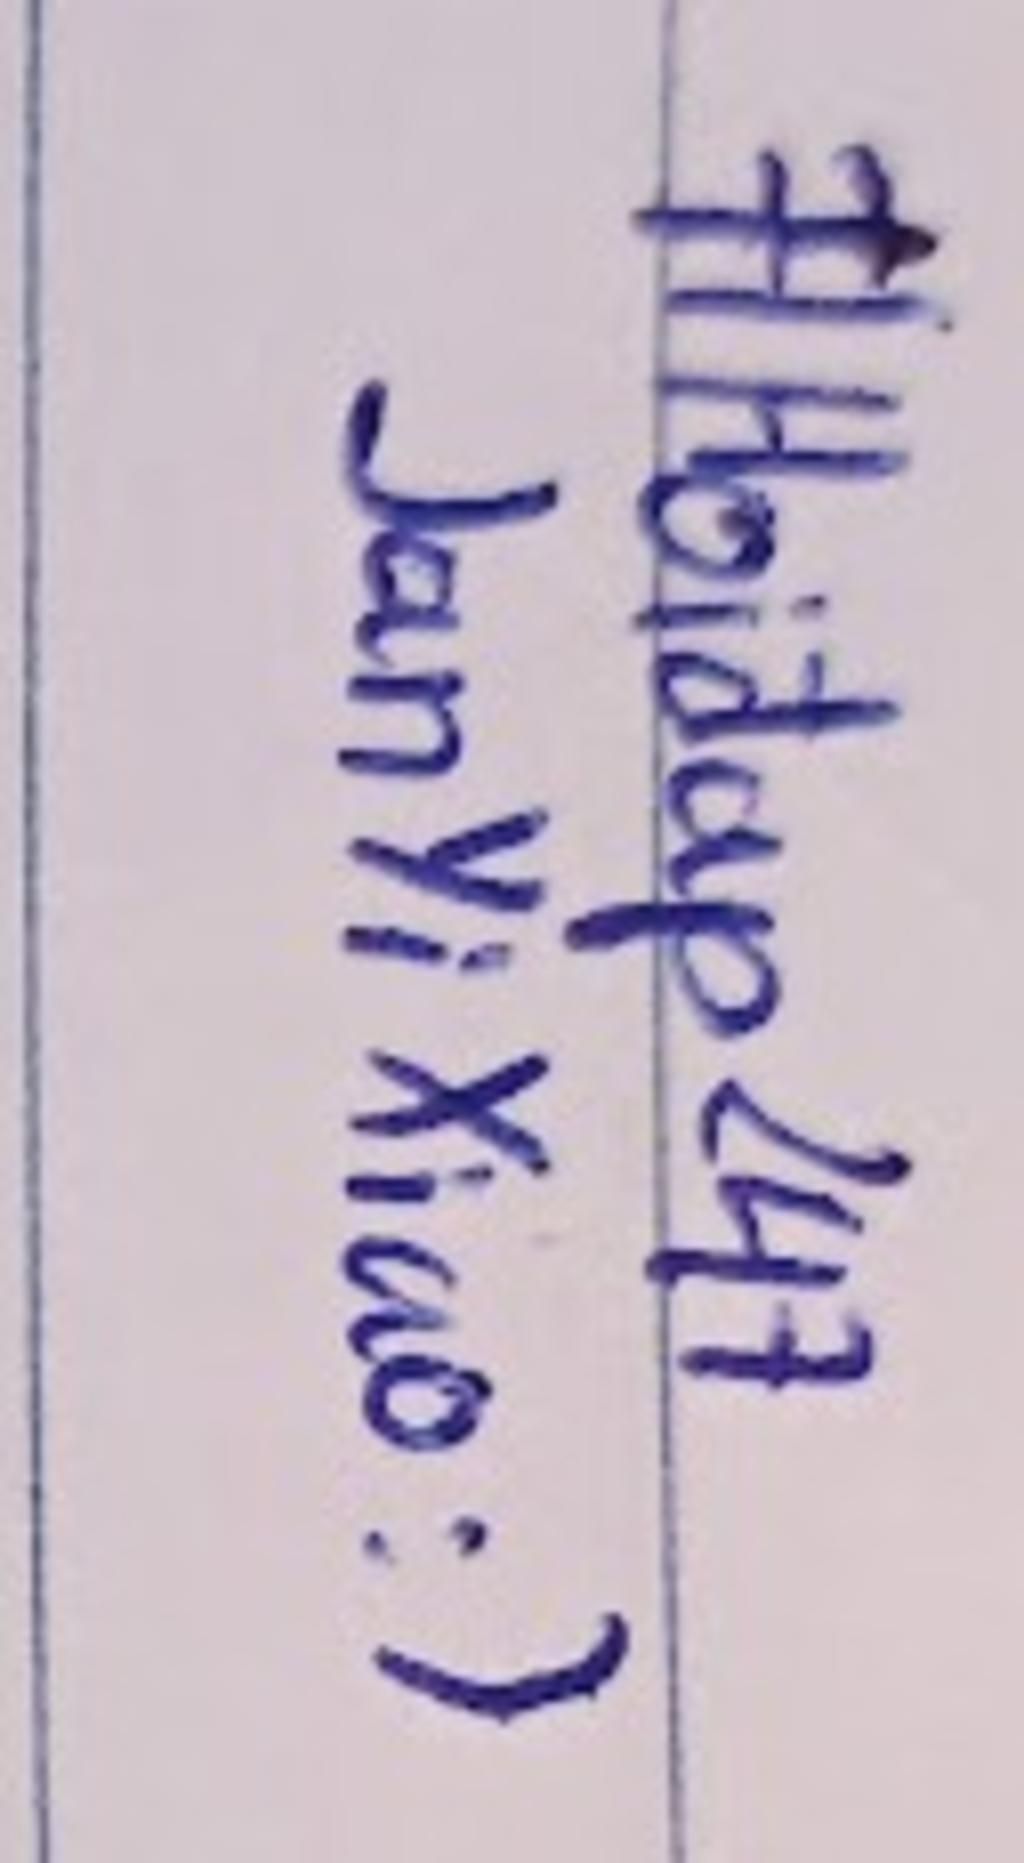 #Hoidap 247
Jan Yi Xiao :)